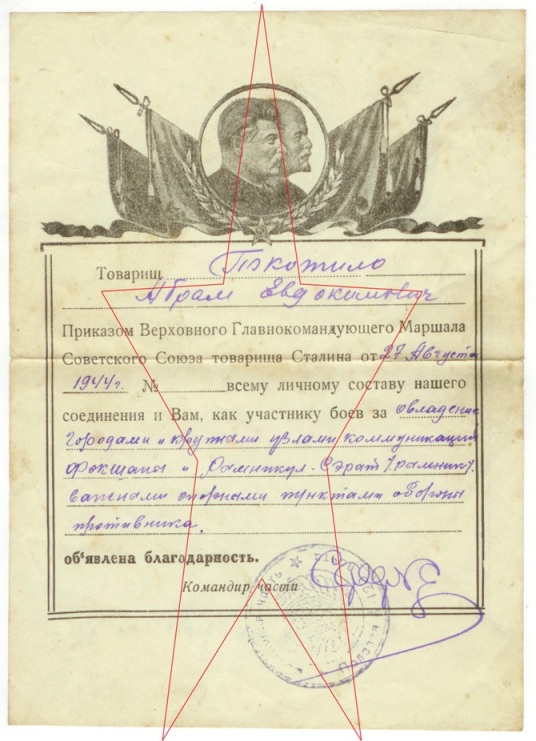 Товарищ Ткотило
Абрам Евдокимович
Приказом Верховного Главнокомандующего Маршала
Советского Союза товарища Сталина от 27 Августа
1944 г. № всему личному составу нашего
соединения и Вам, как участнику боев за овладение
городами и крупными узлами коммуникаций
Фокшаны и Рамникул-Сэрат (Рымник),
важными опорными пунктами обороны
противника,
об‘явлена благодарность.
Командир части